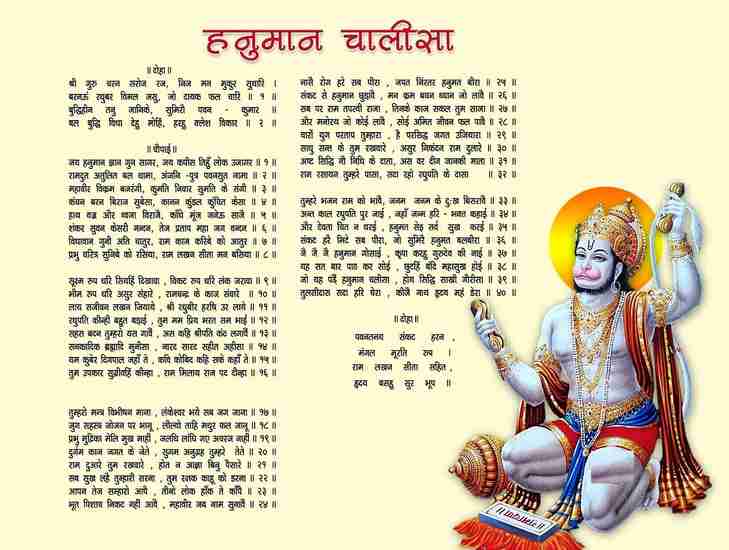 हनुमान चालीसा
॥ दोहा ॥
श्री गुरु चरन सरोज रज, निज मन मुकुर सुधारि ।
बरनऊं रघुबर विमल जसु, जो दायक फल चारि ॥ १ ॥
बुद्धिहीन तनु जानिके, सुमिरौ पवन - कुमार
बल बुद्धि विधा देहु मोहिं, हरहु क्लेश विकार ॥ २ ॥
॥ चौपाई ॥
जय हनुमान ज्ञान गुन सागर, जय कपीस तिहुँ लोक उजागर ॥ १ ॥
रामदूत अतुलित बल धामा, अंजनि -पुत्र पवनसुत नामा ॥ २ ॥
महावीर विक्रम बजरंगी, कुमति निवार सुमति के संगी ॥ ३ ॥
कंचन बरन बिराज सुबेसा, कानन कुंडल कुंचित केसा ॥ ४ ॥
हाथ वज्र और ध्वजा विराजै, काँधे मूंज जनेऊ साजै ॥ ५ ॥
शंकर सुवन केसरी नन्दन, तेज प्रताप महा जग वन्दन ॥ ६ ॥
विधावान गुनी अति चातुर, राम काज करिबे को आतुर ॥ ७ ॥
प्रभु चरित्र सुनिबे को रसिया, राम लखन सीता मन बसिया ॥ ८ ॥
सूक्ष्म रुप धरि सियहिं दिखावा , विकट रुप धरि लंक जरावा ॥ ९ ॥
भीम रुप धरि असुर संहारे , रामचन्द्र के काज संवारे ॥ १० ॥
लाय सजीवन लखन जियाये , श्री रघुबीर हरषि उर लाये ॥ ११ ॥
रघुपति कीन्ही बहुत बड़ाई , तुम मम प्रिय भरत सम भाई ॥ १२ ॥
सहस बदन तुम्हरो यस गावैं , अस कहि श्रीपति कंठ लगावैं ॥ १३ ॥
सनकादिक ब्रह्मादि मुनीसा , नारद सारद सहीत अहीसा ॥ १४ ॥
यम कुबेर दिगपाल जहाँ ते , कवि कोबिद कहि सके कहाँ ते ॥ १५ ॥
तुम उपकार सुग्रीवहिं कीन्हा , राम मिलाय राज पद दीन्हा ॥ १६ ॥
तुम्हरो मन्त्र विभीषन माना , लंकेश्वर भये सब जग जाना ॥ १७ ॥
जुग सहस्त्र जोजन पर भानू , लील्यो ताहि मधुर फल जानू ॥ १८ ॥
प्रभु मुद्रिका मेलि मुख माहीं , जलधि लांघि गए अचरज नाहीं ॥ १९ ॥
दुर्गम काज जगत के जेते , सुगम अनुग्रह तुम्हरे तेते ॥ २० ॥
राम दुआरे तुम रखवारे , होत न आज्ञा बिनु पैसारे ॥ २१ ॥
सब सुख लहै तुम्हारी सरना , तुम रक्षक काहू को डरना ॥ २२ ॥
आपन तेज सम्हारो आपै , तीनों लोक हाँक ते काँपै ॥ २३ ॥
भूत पिशाच निकट नहीं आवै , महावीर जब नाम सुनावै ॥ २४ ॥
नासै रोग हरे सब पीरा , जपत निरंतर हनुमत बीरा ॥ २५ ॥
संकट से हनुमान छुड़ावै , मन क्रम बचन ध्यान जो लावै ॥ २६ ॥
सब पर राम तपस्वी राजा , तिनके काज सकल तुम साजा ॥ २७ ॥
और मनोरथ जो कोई लावै , सोई अमित जीवन फल पावै ॥ २८ ॥
चारों युग परताप तुम्हारा , है परसिद्ध जगत उजियारा ॥ २९ ॥
साधु सन्त के तुम रखवारे , असुर निकंदन राम दुलारे ॥ ३० ॥
अष्ट सिद्धि नौ निधि के दाता, अस वर दीन जानकी माता ॥ ३१ ॥
राम रसायन तुम्हरे पासा, सदा रहो रघुपति के दासा ॥ ३२ ॥
तुम्हरे भजन राम को भावै, जनम जनम के दुःख बिसरावै ॥ ३३ ॥
अन्त काल रघुपति पुर जाई , जहाँ जन्म हरि - भक्त कहाई ॥ ३४ ॥
और देवता चित न धरई , हनुमत सेइ सर्व सुख करई ॥ ३५ ॥
संकट हरे मिटे सब पीरा, जो सुमिरै हनुमत बलबीरा ॥ ३६ ॥
जै जै जै हनुमान गोसाई , कृपा करहु गुरुदेव की नाई ॥ ३७ ॥
यह सत बार पाठ कर सोई , छुटहिं बंदि महासुख होई ॥ ३८ ॥
जो यह पढ़ैं हनुमान चलीसा, होय सिद्धि साखी गौरीसा ॥ ३९ ॥
तुलसीदास सदा हरि चेरा , कीजै नाथ हृदय महं डेरा ॥ ४० ॥
॥ दोहा ॥
पवनतनय संकट हरन ,
मंगल मूरति रुप ।
राम लखन सीता सहित ,
हृदय बसहु सुर भूप ॥